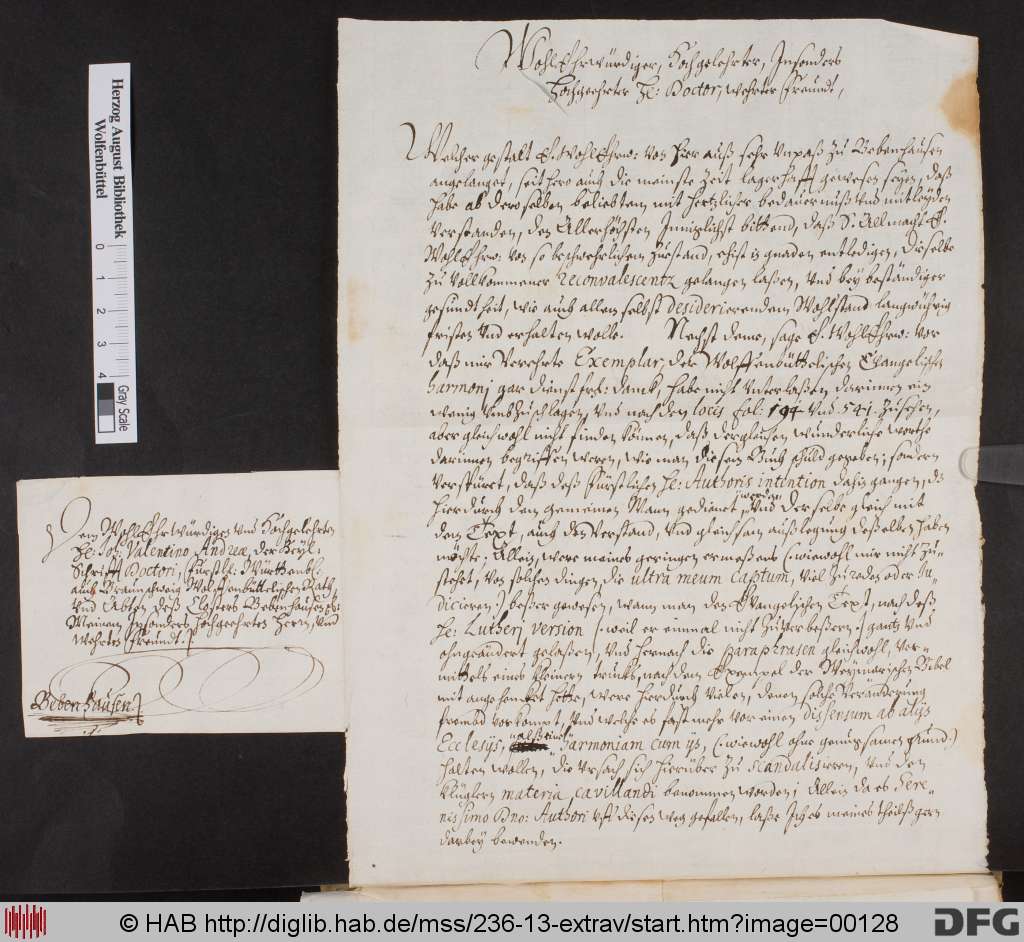 WohlEhrwürdiger, Hochgelehrter, Insonders
Hochgeehrter H: Doctor, wehrter Freundt,
Welcher gestalt E. WohlEhrw: von hier auß sehr Unpaß zu Bebenhausen
angelanget, seithero auch die meinste Zeit lagerhafft gewesen seyen, daß
habe ab deroselben beliebtem mit hertzlicher bedauernuß und mitleyden
verstanden, den Allerhöchsten Inniglichst bittend, daß S: Allmacht E.
WohlEhrw: von so beschwehrlichem Zustand, ehist in gnaden entledigen, dieselbe
zu vollkommener reconvalescentz gelangen laßen, und bey beständiger
gesundtheit, wie auch allem selbst desiderierendem Wohlstand langwührig
fristen und erhalten wolle. Nechst deme, sage E. WohlEhrw: vor
daß mir verehrte Exemplar, der Wolffenbüttelischen Evangelischen
harmoni gar dienstfrl: danck, habe nicht unterlaßen darinnen ein
wenig umbzuschlagen, und nach den locis fol: 194 und 541 zusehen,
aber gleichwohl nicht finden können, daß dergleichen wunderliche worthe
darinnen begriffen weren, wie man diesem Buch schuld gegeben; sondern
verspüret, daß deß Fürstlichen H: Authoris intention dahin gangen, dz
hierdurch dem gemeinen Mann gedienet werden, und derselbe gleich mit
dem Text, auch den Verstand, und gleichsam außlegung deßelben haben
möchte; Allein, were meines geringen ermeßens (:wiewohl mir nicht zu-
stehet, von solchen dingen, die ultra meum captum, viel zureden oder Ju-
dicieren:) beßer gewesen, wann man den Evangelischen Text, nach deß
H: Lutherj version (:weil er einmal nicht zuverbeßern:) gantz und
ohngeändert gelaßen, und hernach die paraphrasen gleichwohl, ver-
mittels eines kleinern truckhs, nach dem Exempel der Weymarischen Bibel
mit angehencket hette, were hierdurch vielen, denen solche veränderung
frembd vorkompt, und welche es fast mehr vor einen dissensum ab alijs
Ecclesijs, alß eine harmoniam cum ijs, (:wiewohl ohne genugsamen grund:)
halten wollen, die ursach sich hierüber zu scandalisieren, und den
Klüglern materia cavillandi benommen worden; Allein da es Sere-
nissimo Dno: Authori uff diesen weg gefallen, laße Ich es meines theilß gern
darbey bewenden.
Dem WohlEhrwürdigen und Hochgelehrten
H: Joh: Valentino Andreæ, der Heyl:
Schrifft Doctori, Fürstl: Württenb:
auch Braunschweig Wolfenbüttelischen Rath,
und Abten deß Closters Bebenhausen
Meinem Insonders Hochgeehrten Herrn, und
wehrten Freundt.
Bebenhausen
Herzog August Bibliothek
Wolfenbüttel
0 1 2 3 4
Gray Scale
© HAB http://diglib.hab.de/mss/236-13-extrav/start.htm?image=00128
DFG